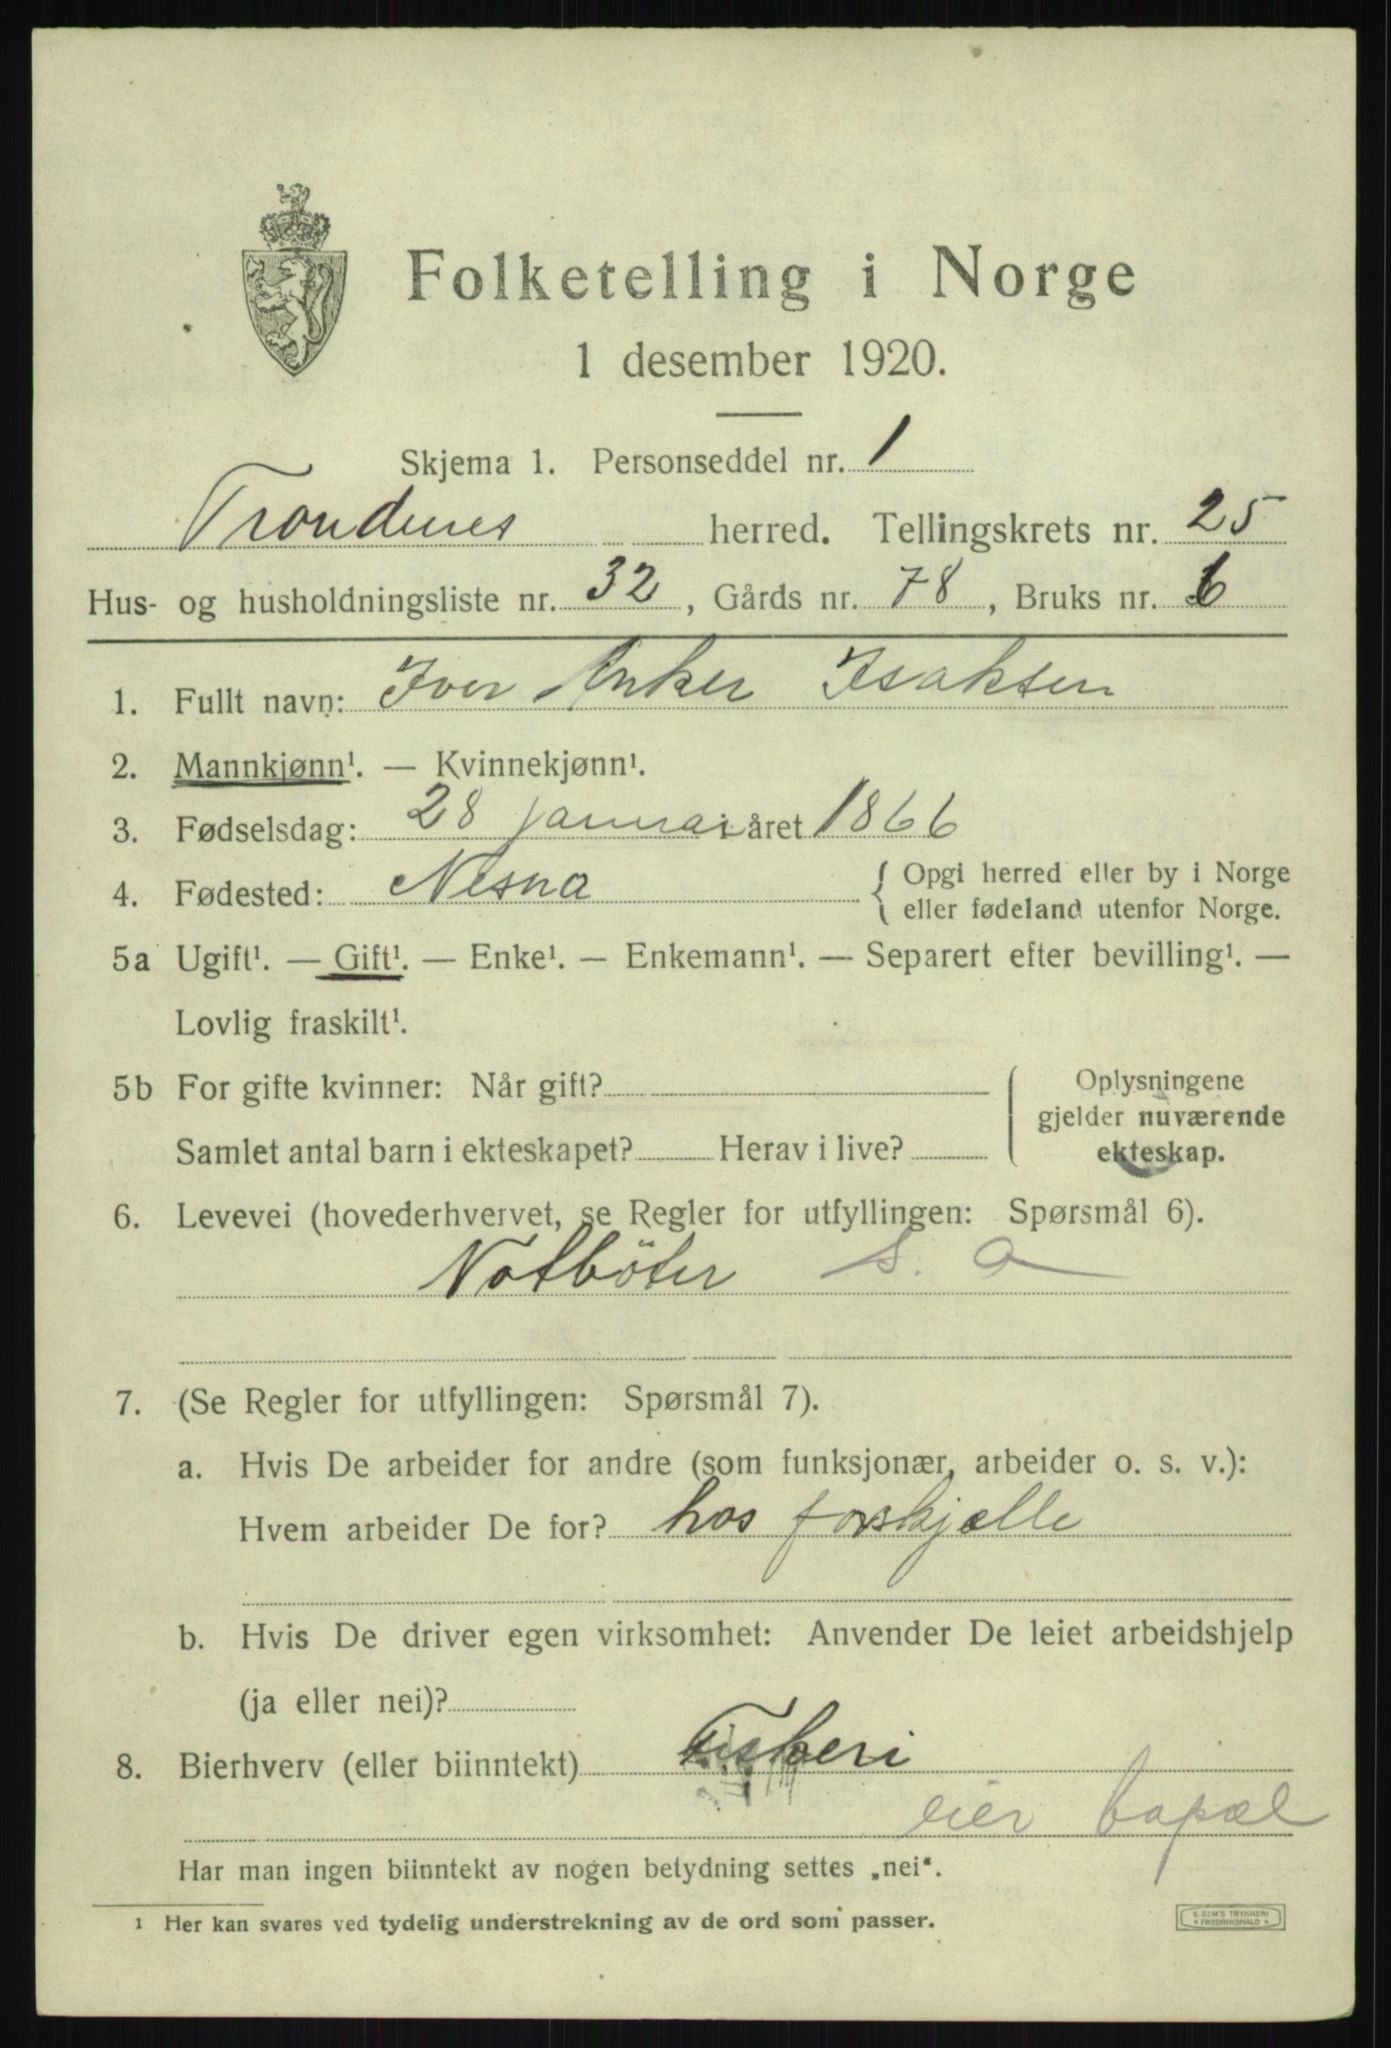 Folketelling i Norge
1 desember 1920.
Skjema 1. Personseddel nr. 1
Trondenes herred. Tellingskrets nr. 25
Hus- og husholdningsliste nr. 32, Gårds nr. 78, Bruks nr. 6
1. Fullt navn: Iver Anker Isaksen
2. Mannkjønn¹. — Kvinnekjønn¹.
3. Fødselsdag: 28 januar i året 1866
4. Fødested: Nesna { Opgi herred eller by i Norge
eller fødeland utenfor Norge.
5a Ugift¹. — Gift¹. — Enke¹. — Enkemann¹. — Separert efter bevilling¹. —
Lovlig fraskilt¹.
5b For gifte kvinner: Når gift? Oplysningene
gjelder nuværende
Samlet antal barn i ekteskapet? Herav i live? ekteskap.
6. Levevei (hovederhvervet, se Regler for utfyllingen: Spørsmål 6).
Notböter s. a
7. (Se Regler for utfyllingen: Spørsmål 7).
a. Hvis De arbeider for andre (som funksjonær, arbeider o. s. v.):
Hvem arbeider De for? hos forskjælle
b. Hvis De driver egen virksomhet: Anvender De leiet arbeidshjelp
(ja eller nei)?
8. Bierhverv (eller biinntekt) Fiskeri
eier
Har man ingen biinntekt av nogen betydning settes „nei“.
1 Her kan svares ved tydelig understrekning av de ord som passer.
E. SEM'S TRYKKERI
FREDRIKSHALD